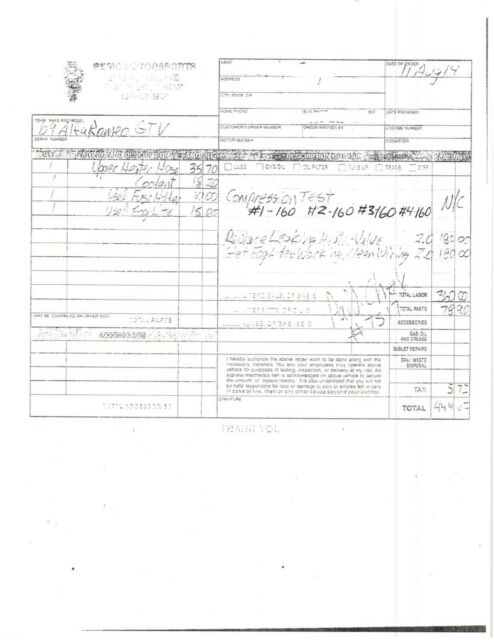 NAME
DATE OF ORDER
11 Aug 14
ADDRESS
CITY, STATE, ZIP
HOME PHONE
EXT
DATE PROMISED
YEAR, MAKE AND MODEL
69 Alfa Romeo GTV
CUSTOMER'S ORDER NUMBER
ORDER WRITTEN BY
LICENSE NUMBER
SERIAL NUMBER
MOTOR NUMBER
ODOMETER
LUBE
CHG OIL
OIL FILTER
TUNE UP
TRANS.
DIFF.
1 Upper Heater Hose 35 70
1 Coolant 18 20
1 Used Fuse Holder 10.00
1 Used 15.00
Compression TEST N/C
#1-160 #2-160 #3 160 #4 160
Replace Leaking Heater Valve 2.0 180.00
Get Working, Clean Wiring 2.0 180.00
Pd. Chek
# 757
TOTAL LABOR 360.00
TOTAL PARTS 78.90
ACCESSORIES
GAS, OIL AND GREASE
SUBLET REPAIRS
EPA / WASTE DISPOSAL
TOTAL PARTS
I hereby authorize the above repair work to be done along with the
necessary materials. You and your employees may operate above
vehicle for purposes of testing, inspection, or delivery at my risk. An
express mechanics lien is acknowledged on above vehicle to secure
the amount of repairs thereto. It is also understood that you will not
be held responsible for loss or damage to cars or articles left in cars
in case of fire, theft or any other cause beyond your control.
TAX 5 77
SIGNATURE
TOTAL 444 67
TOTAL ACCESSORIES
THANK YOU